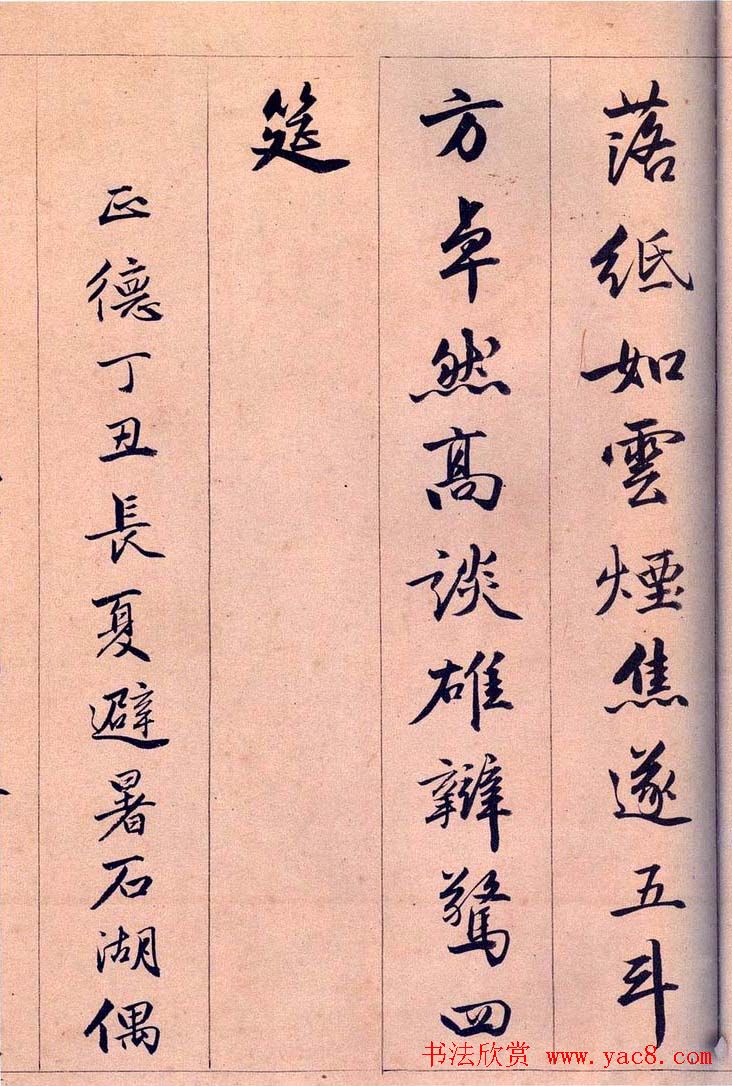 落紙如雲煙焦遂五斗
方卓然高談雄辯驚四
筵
正德丁丑長夏避暑石湖偶
书法欣赏 www.yac8.com